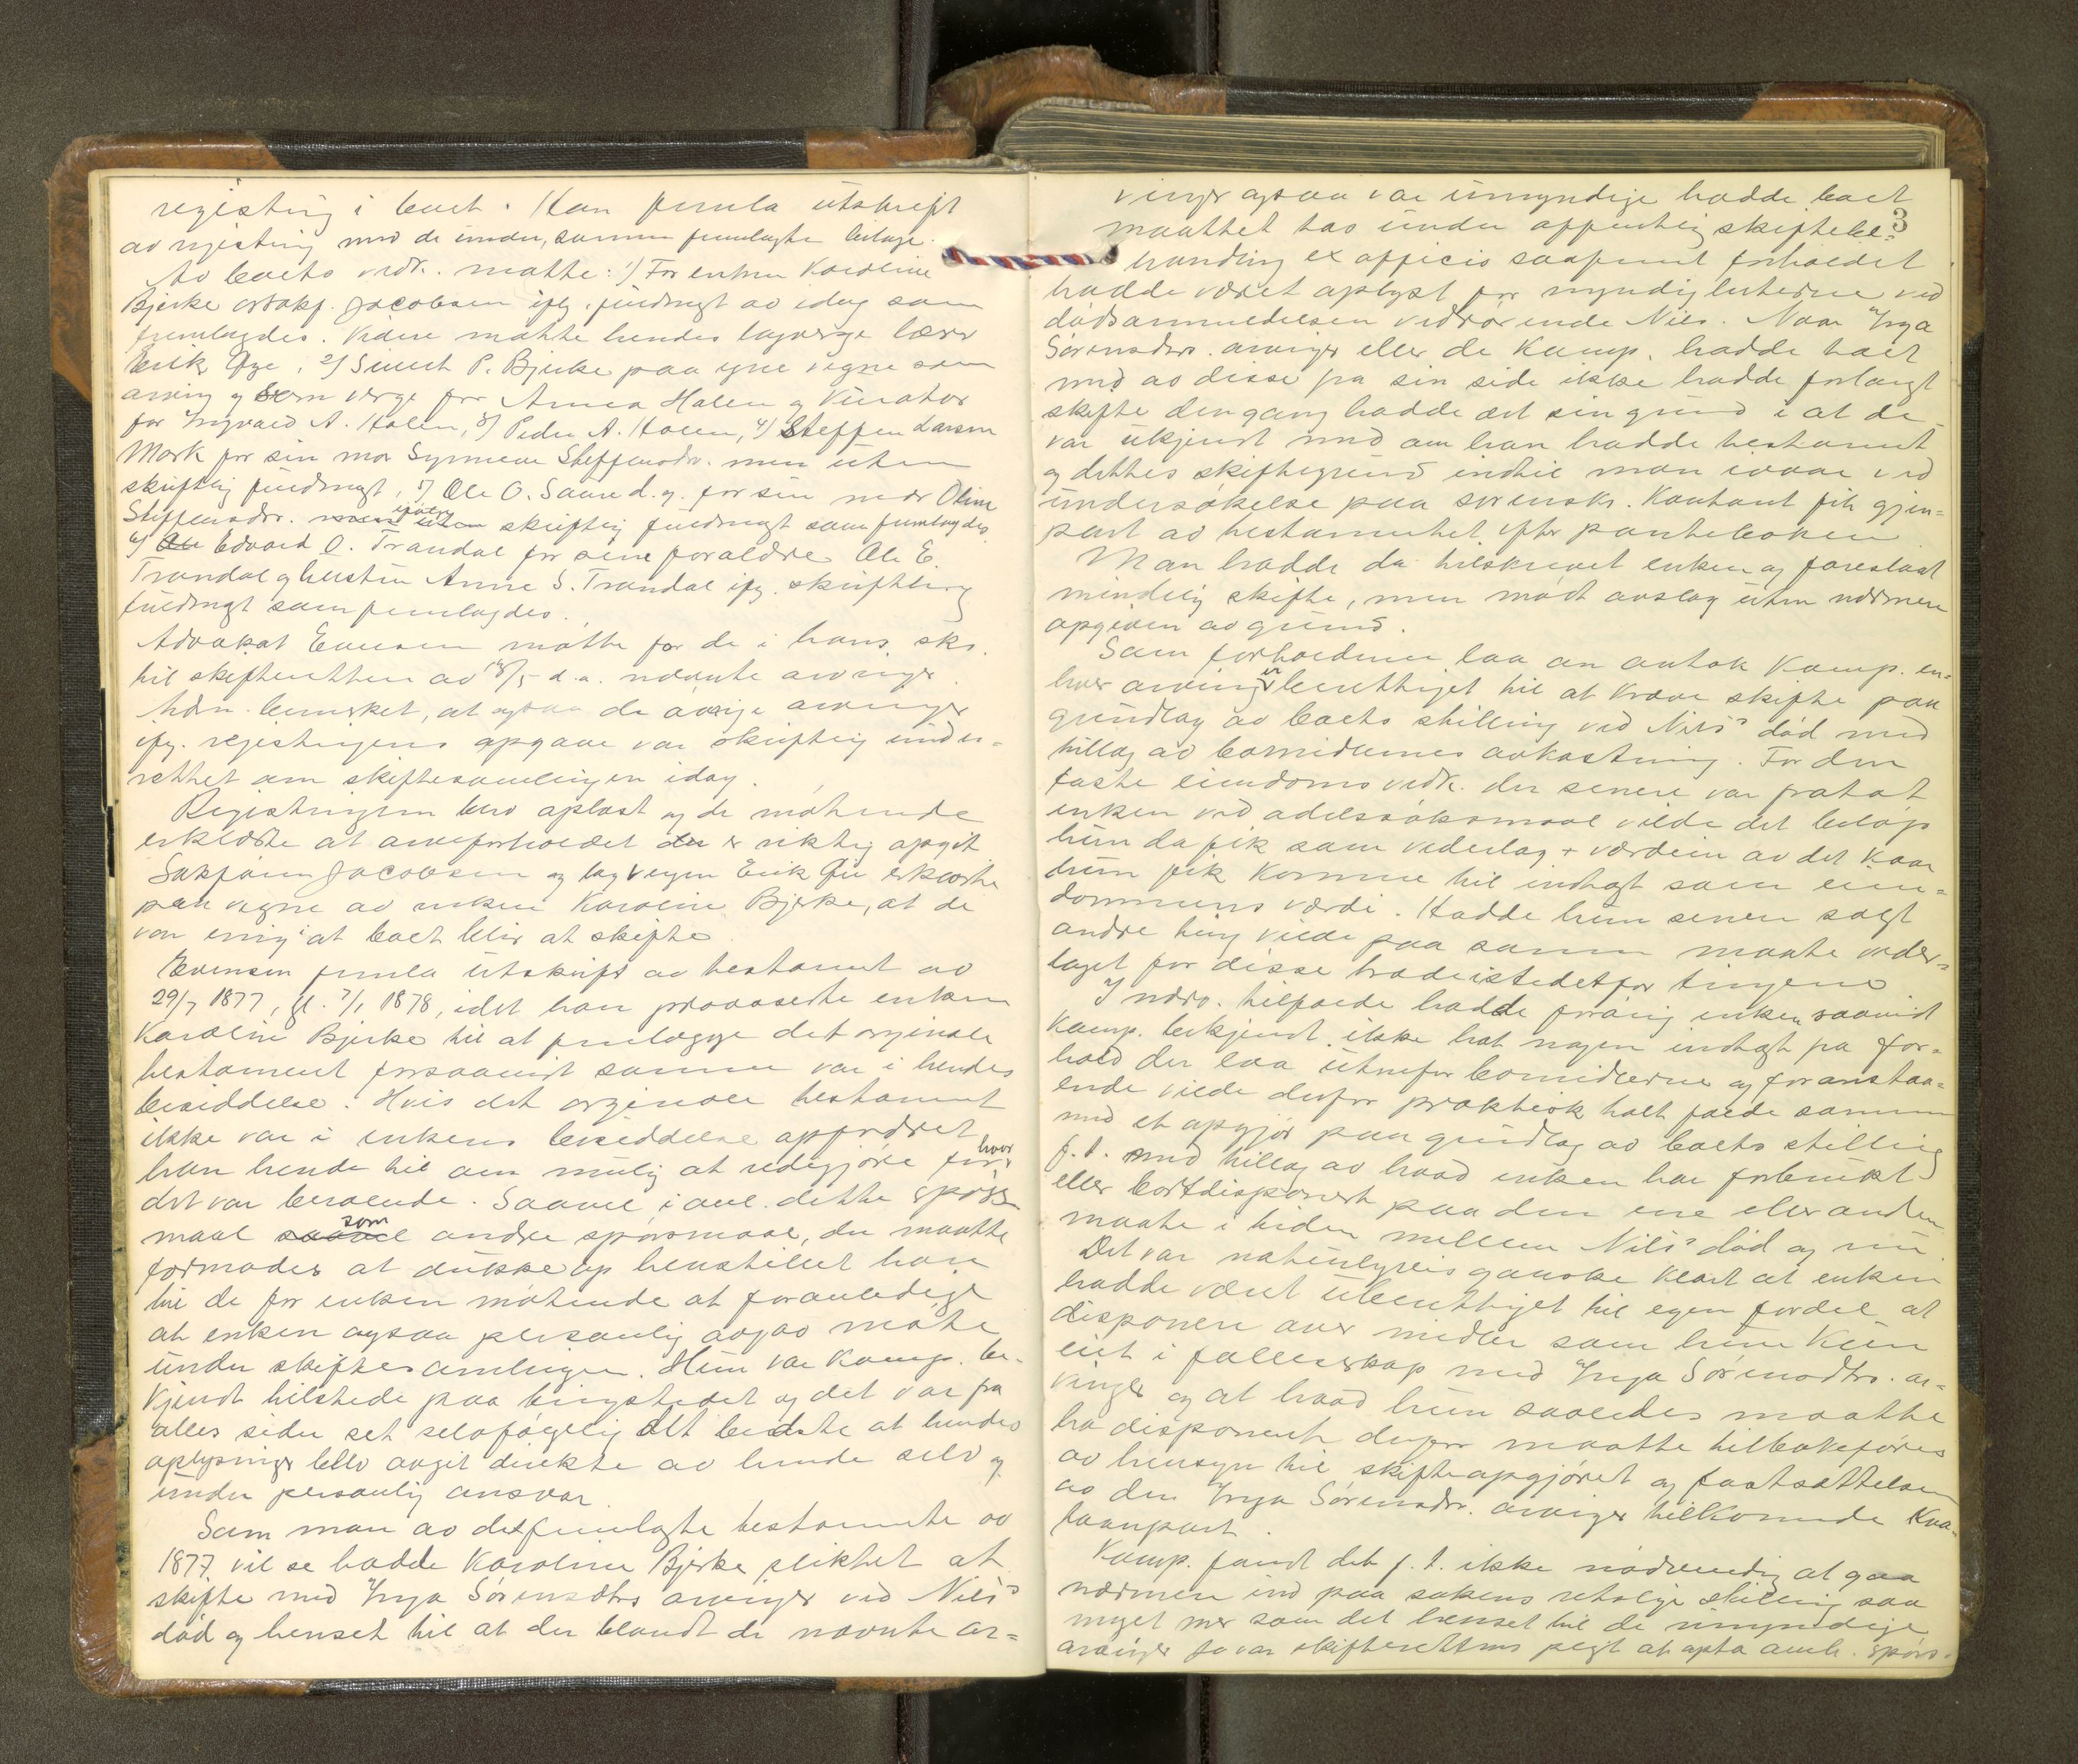 registring i boet. Han fremla utskrift
av registring med de under samme fremlagte bilage.
Av boets vedk. møtte: 1) For enken Karoline
Bjerke o.r.sakf. Jacobsen ifg. fuldmagt av idag som
fremlagdes. Videre møtte hendes lagverge lærer
Erik Øye, 2) Sivert P. Bjerke paa egne vegne som
arving og som verge for Anna Holen og kurator
for Ingvald A. Holen, 3) Peder A. Holen, 4) Steffen Larsen
Mork for sin mor Synneve Steffensdtr. men uten
skriftlig fuldmagt, 5) Ole O. Saure d.y. for sin mor Oline
Steffensdtr. ifølge skriftlig fuldmagt som fremlagdes
6) Edvard O. Trandal for sine forældre Ole E.
Trandal og hustru Anne S. Trandal ifg. skriftlig
fuldmagt som fremlagdes.
Advokat Evensen møtte for de i hans skr.
til skifteretten av 18/5 d.a. nævnte arvinger.
Adm. bemerket, at ogsaa de øvrige arvinger
ifg. registringens opgave var skriftlig under-
rettet om skiftesamlingen idag.
Registringen blev oplæst og de møtende
erklærte at arveforholdet er riktig opgit
Sakfører Jacobsen og lagvergen Erik Øie erklærte
paa vegne av enken Karoline Bjerke, at de
var enig i at boet blir at skifte
Evensen fremla utskrift av testament av
29/7 1877, gl. 7/1 1878, idet han provoserte enken
Karoline Bjerke til at fremlægge det orginale
testament forsaavidt samme var i hendes
besiddelse. Hvis det orginale testament
ikke var i enkens besiddelse opfordret
han hende til om mulig at redegjøre for, hvor
det var beroende. Saavel i anl. dette spørs
maal som andre spørsmaal, der maatte
formodes at dukke op henstillet han
til de for enken møtende at foranledige
at enken ogsaa personlig avgav møte
under skiftesamlingen. Hun var komp. be-
kjendt tilstede paa tingstedet og det var fra
alles sider set selvfølgelig det bedste at hendes
oplysninger blev avgit direkte av hende selv og
under personlig ansvar.
Som man av det fremlagte testamente av
1877 vil se hadde Karoline Bjerke pliktet at
skifte med Inga Sørensdtrs arvinger ved Nils'
død og henset til at der blandt de nævnte ar=
3
vinger ogsaa var umyndige hadde boet
maattet tas under offentlig skiftebe=
handling ex officio saafremt forholdet
hadde været oplyst for myndigheterne ved
dødsanmeldelsen vedrørende Nils. Naar Inga
Sørensdtrs. arvinger eller de Komp. hadde talt
med av disse fra sin side ikke hadde forlangt
skifte dengang hadde det sin grund i at de
var ukjendt med om han hadde testament
og dettes skiftegrund indtil man ivaar ved
undersøkelse paa sorenskr. Kontant fik gjen=
part av testamentet efter panteboken
Man hadde da tilskrevet enken og foreslaat
mindelig skifte, men mødt avslag uten nærmere
opgiven av grund.
Som forholdene laa an antok Komp. en=
hver arving er berettiget til at kræve skifte paa
grundlag av boets stilling ved Nils' død med
tillæg av bomidlernes avkastning. For den
faste eiendoms vedk. der senere var fratat
enken ved odelssøksmaal vilde det beløp
hun da fik som vederlag + værdien av det kaar
hun fik komme til indtægt som eien=
dommens værdi. Hadde hun senere solgt
andre ting vilde paa samme maate veder=
laget for disse træde istedetfor tingene
I nærv. tilfælde hadde forøvrig enken saavidt
Komp. bekjendt ikke hat nogen indtægt fra for=
hold der laa utenfor bomidlerne og foranstaa=
ende vilde derfor praktisk talt falde sammen
med et opgjør paa grundlag av boets stilling
f.t. med tillæg av hvad enken har forbrukt
eller bortdisponert paa den ene eller anden
maate i tiden mellem Nils' død og nu.
Det var naturligvis ganske klart at enken
hadde været uberettiget til egen fordel at
disponere over midler som hun kun
eiet i fællesskap med Inga Sørensdtrs. ar=
vinger og at hvad hun saaledes maatte
ha disponert derfor maatte tilbakeføres
av hensyn til skifteopgjøret og fastsættelsen
av den Inga Sørensdtr. arvinger tilkommende kva-
tavpart.
Komp. fandt det f.t. ikke nødvendig at gaa
nærmere ind paa sakens retslige stilling saa
meget mer som det henset til de umyndige
arvinger jo var skifterettens pligt at opta anh. spørs-